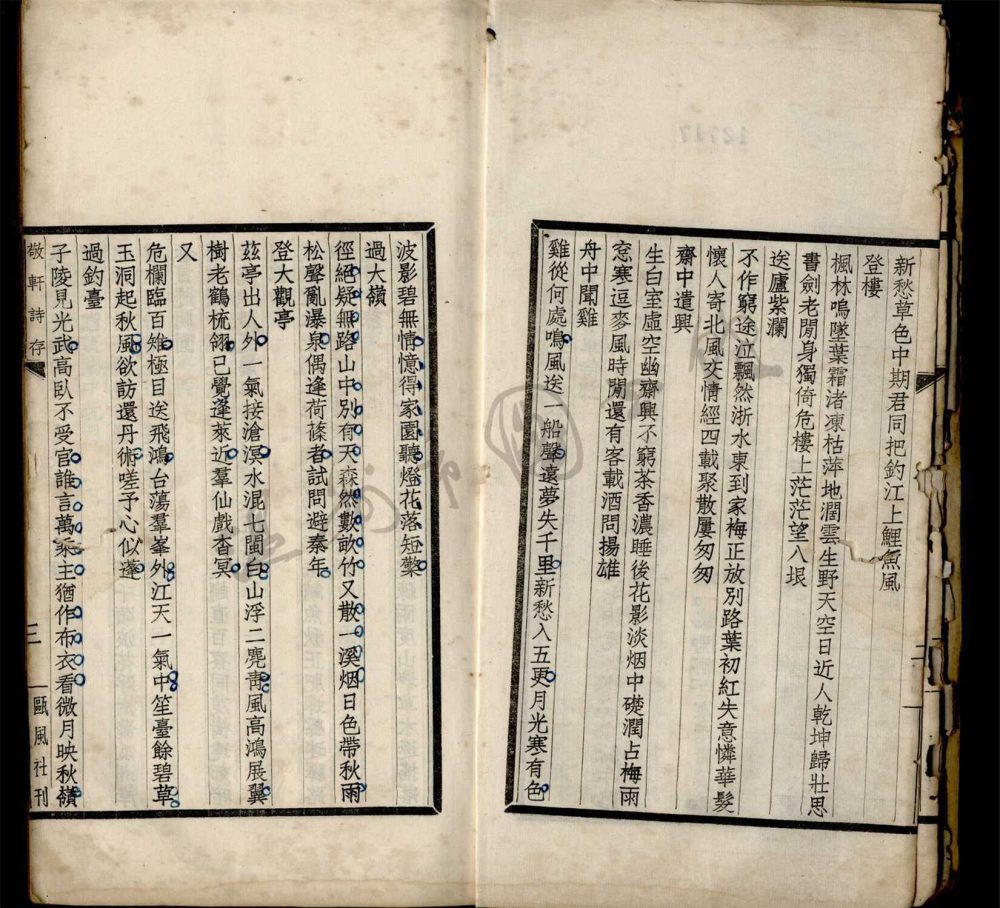 新愁草色中期君同把釣江上鯉魚風
登樓
楓林嗚墜葉霜渚凍枯萍地濶雲生野天空日近人乾坤歸壯思
書劍老閒身獨倚危樓上茫茫望八垠
送廬紫瀾
不作窮途泣飄然浙水東到家梅正放別路葉初紅失意憐華髮
懷人寄北風交情經四載聚散屢匆匆
齋中遣興
生白室虛空幽齋興不窮茶香濃睡後花影淡烟中礎潤占梅雨
窓寒逗麥風時閒還有客載酒問揚雄
舟中聞雞
雞從何處鳴風送一船聲遠夢失千里新愁入五更月光寒有色
二
波影碧無情憶得家園聽燈花落短檠
過大嶺
徑絕疑無路山中別有天森然數畝竹又散一溪烟日色帶秋雨
松聲亂瀑泉偶逢荷篠者試問避秦年
登大觀亭
茲亭出人外一氣接滄溟水混七閩白山浮二麂靑風高鴻展翼
樹老鶴梳翎已覺蓬萊近羣仙戲杳冥
又
危欄臨百雉極目送飛鴻台蕩羣峯外江天一氣中笙臺餘碧草
玉洞起秋風欲訪還丹術嗟予心似蓬
過釣臺
子陵見光武高臥不受官誰言萬乘主猶作布衣看微月映秋嶺
敬軒詩存
三
甌風社刊